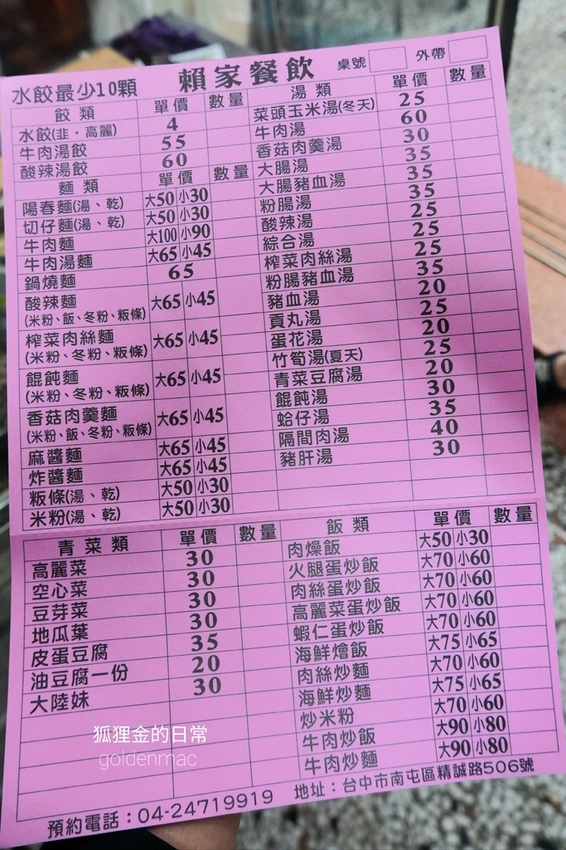 賴家餐飲
水餃最少10顆
桌號 外帶
餃類 單價 數量
水餃(韭・高麗) 4
牛肉湯餃 55
酸辣湯餃 60
麵類 單價 數量
陽春麵(湯、乾) 大50 小30
切仔麵(湯、乾) 大50 小30
牛肉麵 大100 小90
牛肉湯麵 大65 小45
鍋燒麵 65
酸辣麵 大65 小45
(米粉、飯、冬粉、粄條)
榨菜肉絲麵 大65 小45
(米粉、冬粉、粄條)
餛飩麵 大65 小45
(米粉、冬粉、粄條)
香菇肉羹麵 大65 小45
(米粉、飯、冬粉、粄條)
麻醬麵 大65 小45
炸醬麵 大65 小45
粄條(湯、乾) 大50 小30
米粉(湯、乾) 大50 小30
湯類 單價 數量
菜頭玉米湯(冬天) 25
牛肉湯 60
香菇肉羹湯 30
大腸湯 35
大腸豬血湯 35
粉腸湯 35
酸辣湯 25
綜合湯 25
榨菜肉絲湯 25
粉腸豬血湯 35
豬血湯 20
貢丸湯 25
蛋花湯 20
竹筍湯(夏天) 25
青菜豆腐湯 20
餛飩湯 30
蛤仔湯 35
隔間肉湯 40
豬肝湯 30
青菜類 單價 數量
高麗菜 30
空心菜 30
豆芽菜 30
地瓜葉 30
皮蛋豆腐 35
油豆腐一份 20
大陸妹 30
飯類 單價 數量
肉燥飯 大50 小30
火腿蛋炒飯 大70 小60
肉絲蛋炒飯 大70 小60
高麗菜蛋炒飯 大70 小60
蝦仁蛋炒飯 大70 小60
海鮮燴飯 大75 小65
肉絲炒麵 大70 小60
海鮮炒麵 大75 小65
炒米粉 大70 小60
牛肉炒飯 大90 小80
牛肉炒麵 大90 小80
狐狸金的日常
goldenmac
預約電話：04-24719919 地址：台中市南屯區精誠路506號